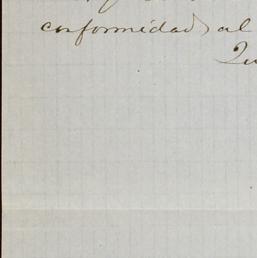 conformidad al
Qu